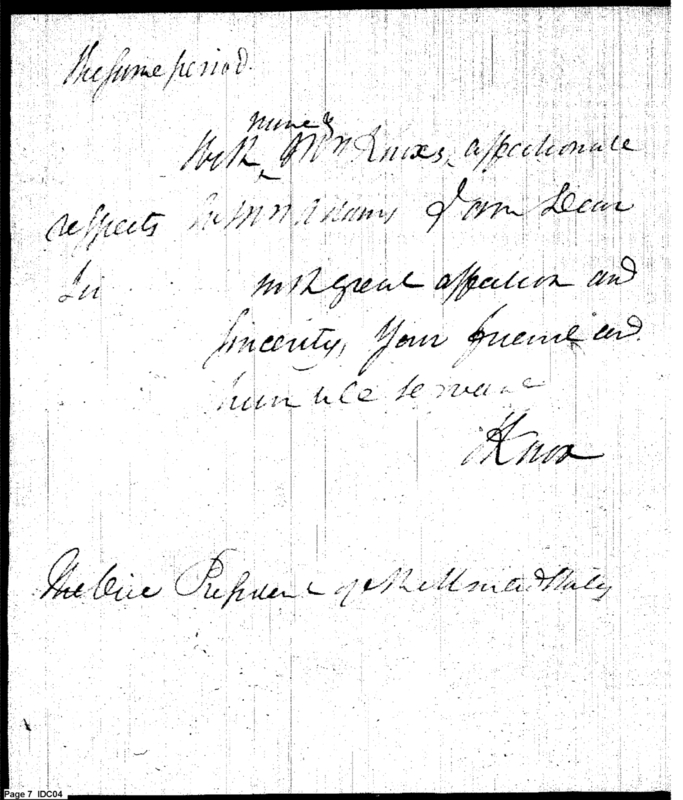 the same period.
mine &
With ^ Mrs Knoxs, affectionate
respects to Mrs Adams I am Dear
Sir with great affection and
sincerity, Your friend and
humble servant
HKnox
The Vice President of the United States
Page 7 IDC04